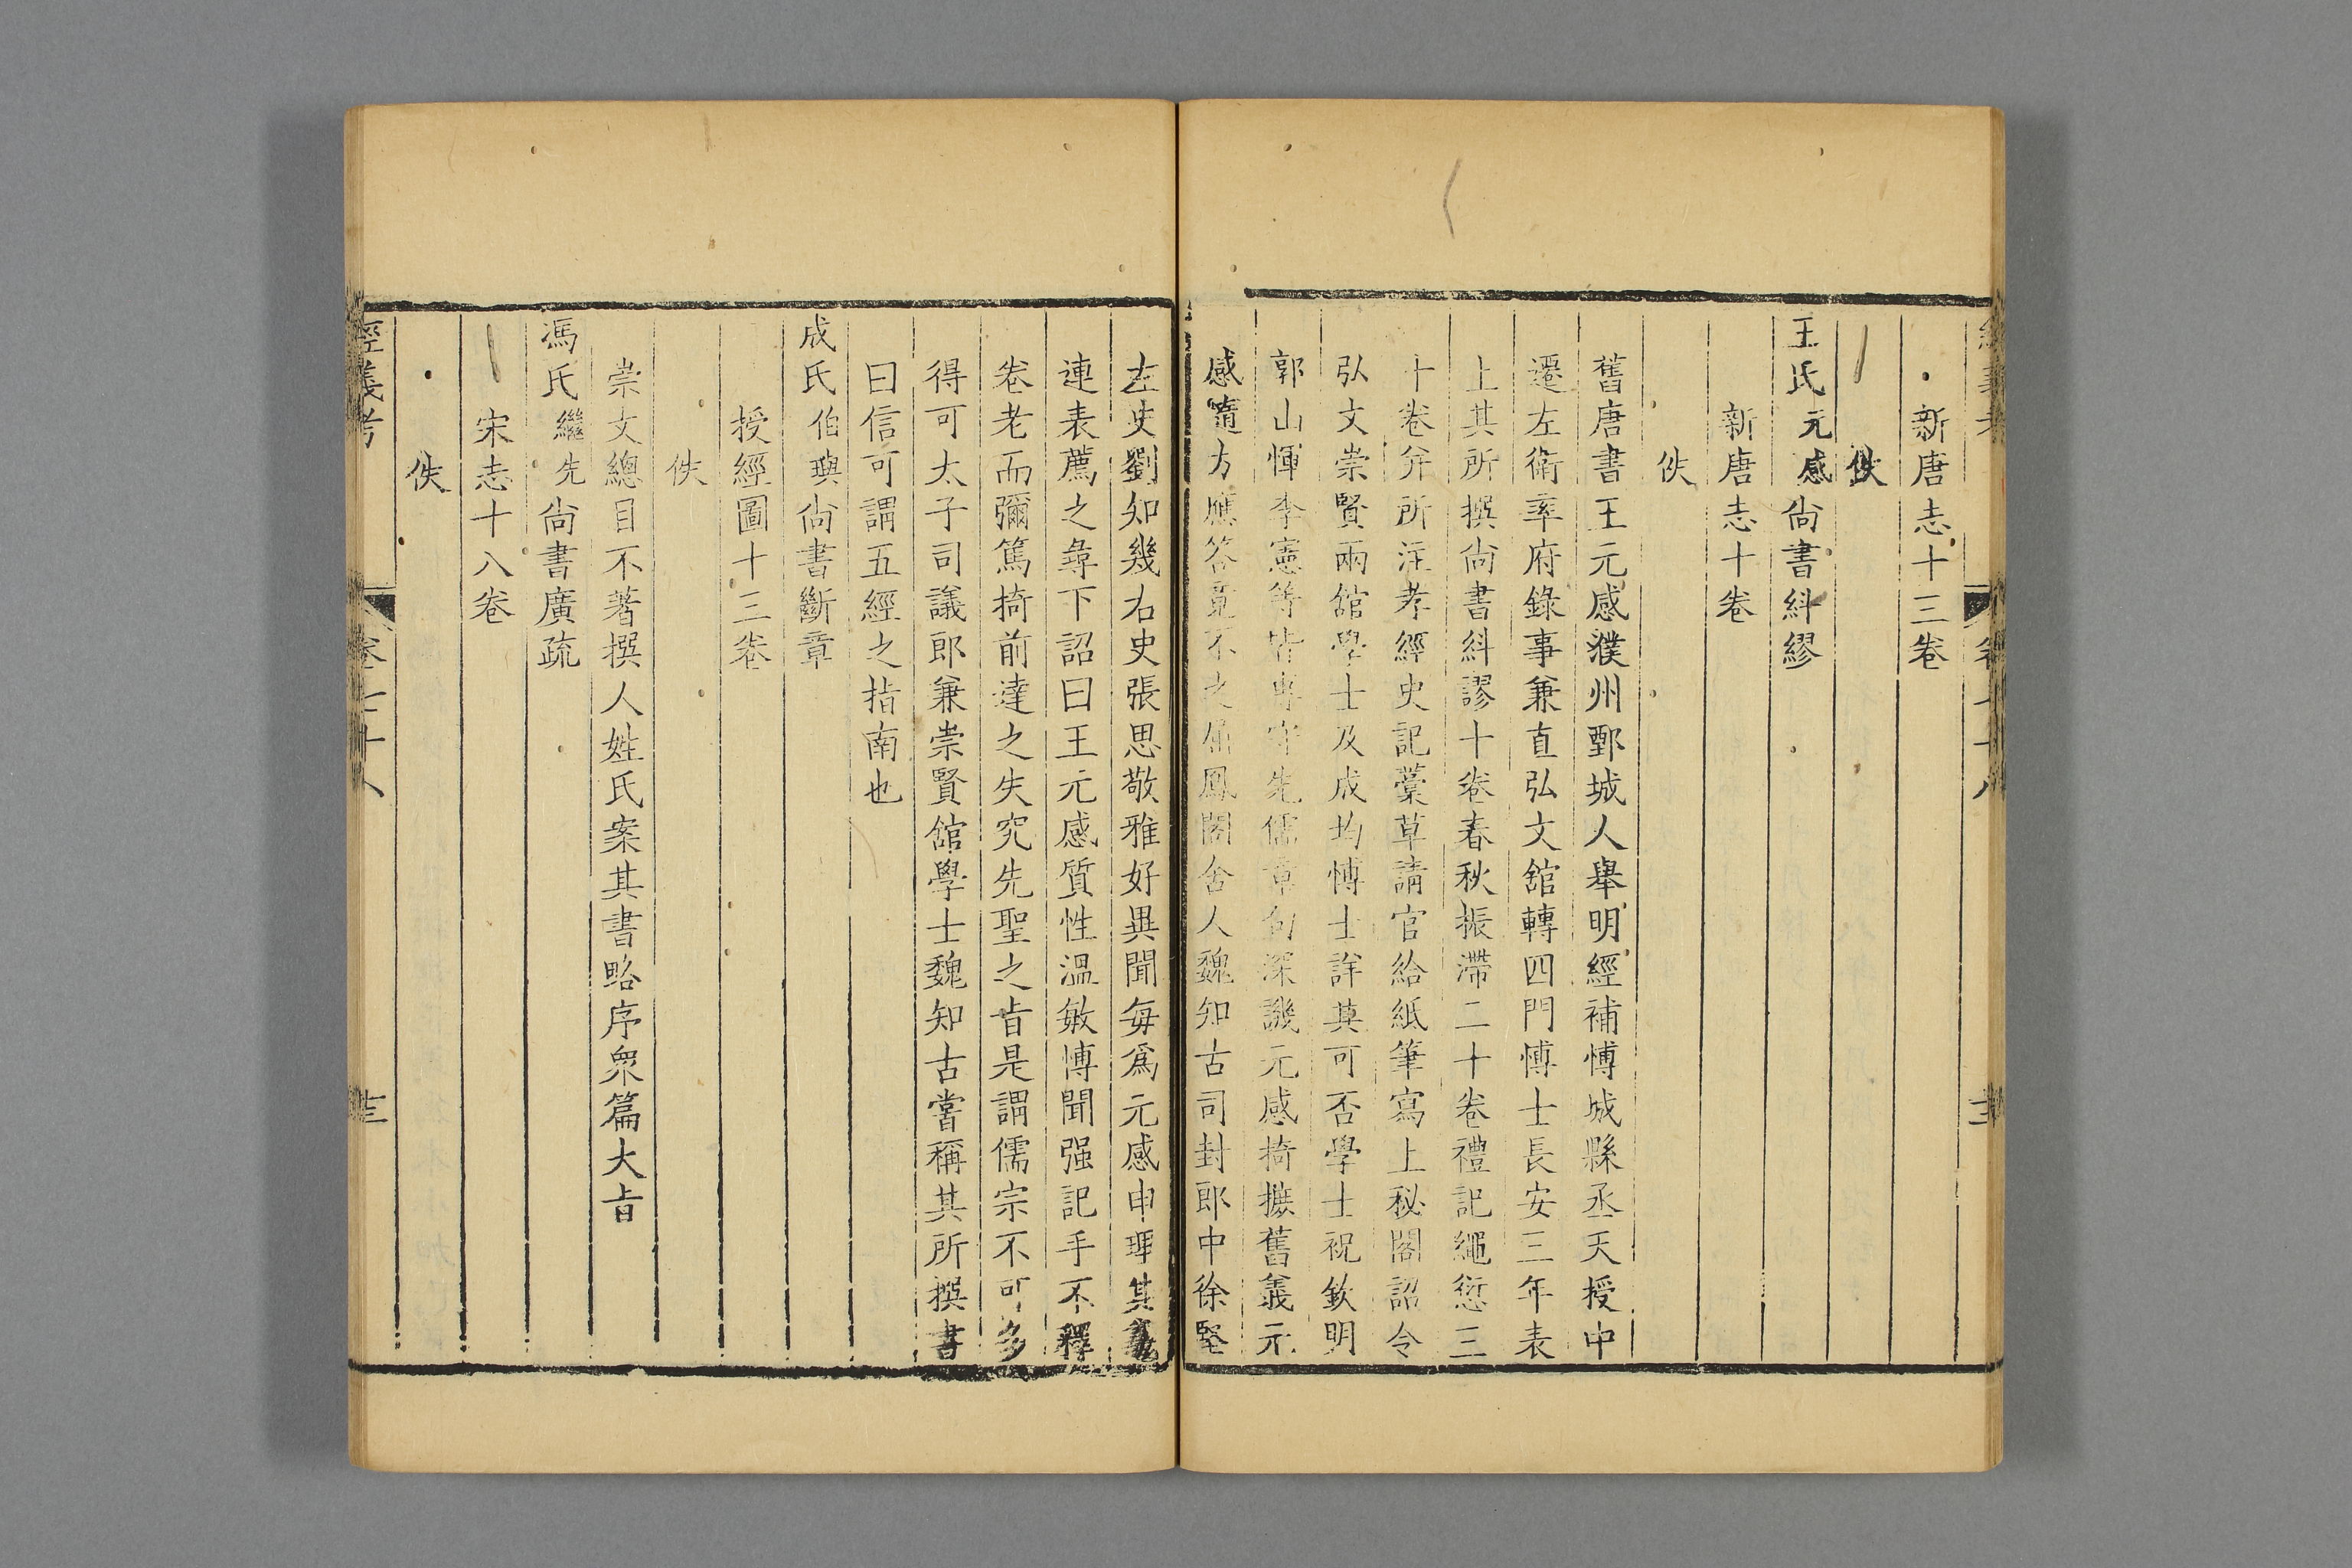 新唐志十三卷
佚
王氏元感尚書糾繆
新唐志十卷
佚
舊唐書王元感濮州鄄城人舉明經補博城縣丞天授中
遷左衛率府錄事兼直弘文舘轉四門博士長安三年表
上其所撰尚書糾謬十卷春秋振滯二十卷禮記繩愆三
十卷并所注孝經史記藁草請官給紙筆寫上秘閣詔令
弘文崇賢兩舘學士及成均博士詳其可否學士祝欽明
郭山惲李憲等皆專守先儒章句深譏元感掎摭舊義元
感隨方應答竟不之屈鳳閣舍人魏知古司封郎中徐堅
左史劉知幾右史張思敬雅好異聞每爲元感申理其義
連表薦之尋下詔曰王元感質性溫敏博聞强記手不釋
卷老而彌篤掎前達之失究先聖之旨是謂儒宗不可多
得可太子司議郎兼崇賢舘學士魏知古嘗稱其所撰書
曰信可謂五經之指南也
成氏伯璵尚書斷章
授經圖十三卷
佚
崇文總目不著撰人姓氏案其書略序衆篇大旨
馮氏繼先尚書廣疏
宋志十八卷
佚
經義考 卷七十八